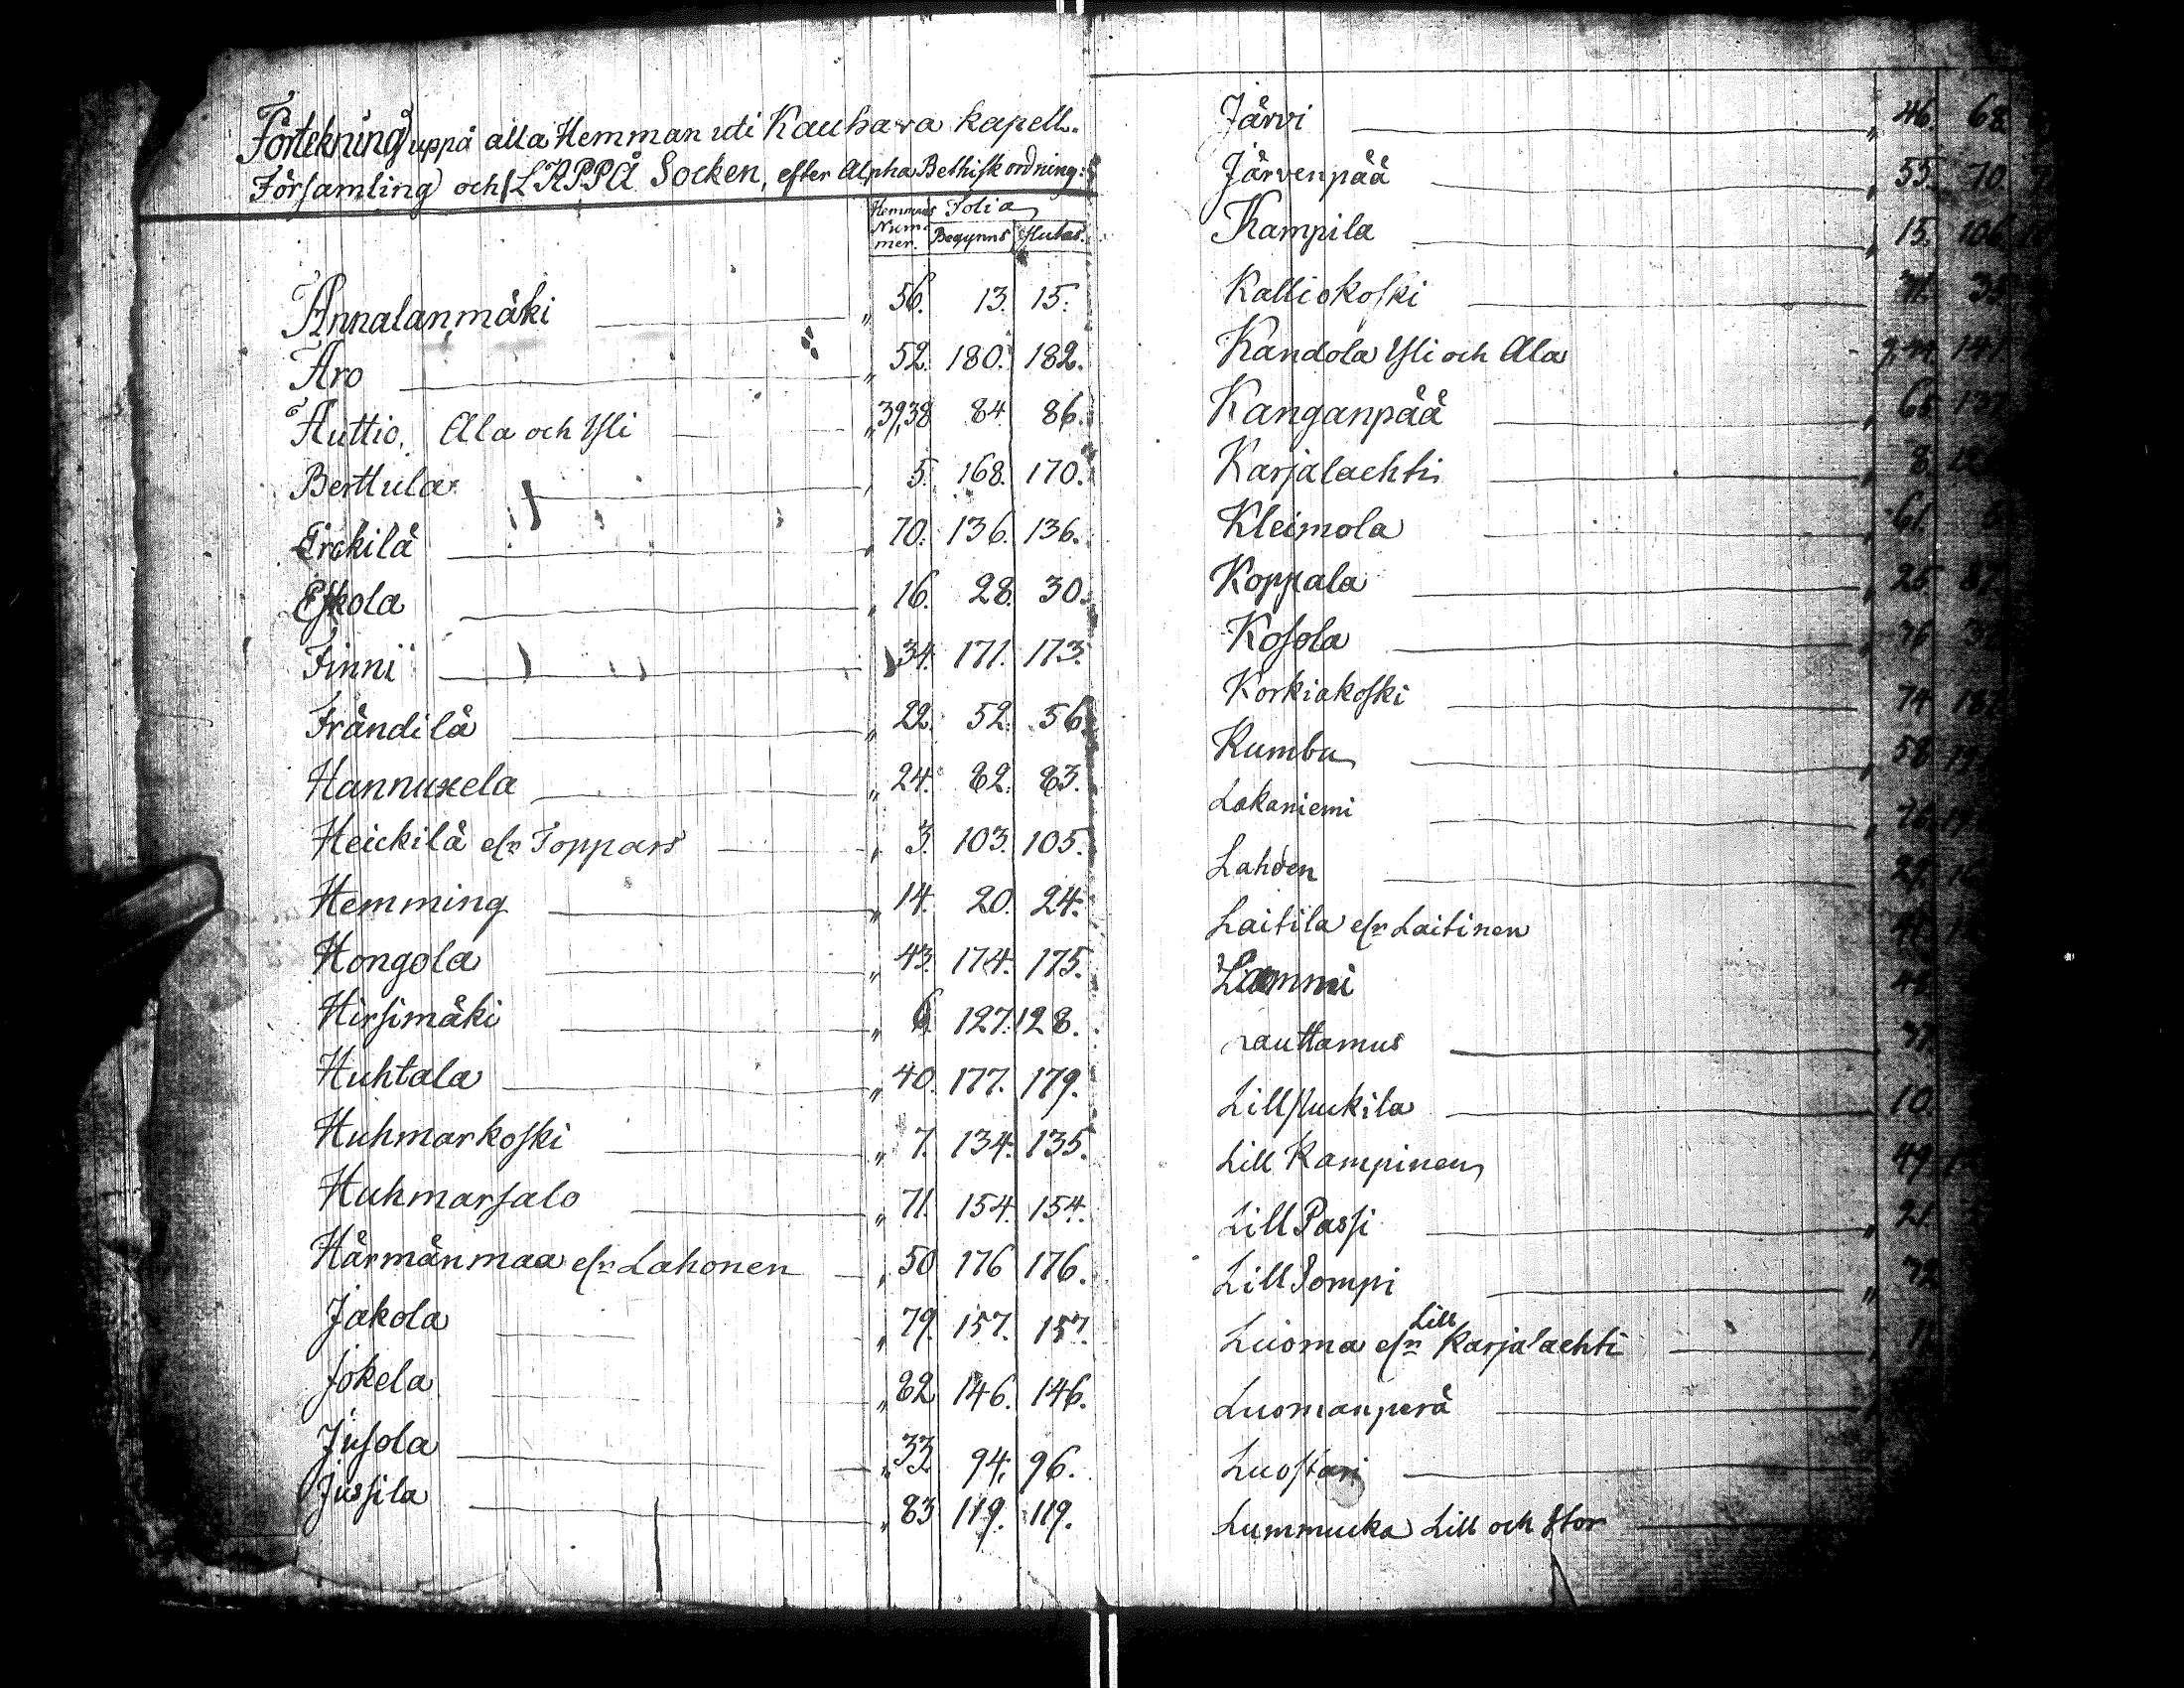 Förtekning uppå alla Hemman uti Kauhava kapells
Församling och LAPPÅ Socken, efter AlphaBethisk ordning:
Hemmans Nummer. Folia
Begynns Slutas.
Annalanmäki „ 56. 13. 15.
Aro „ 52. 180. 182.
Auttio, Ala och Yli „ 39,38 84 86.
Berttula „ 5. 168. 170.
Erckilä „ 70. 136. 136.
Eskola „ 16. 28. 30.
Finni „ 34. 171. 173.
Frändilä „ 22. 52. 56.
Hannuxela „ 24. 82. 83.
Heickilä elr Toppars „ 3. 103. 105.
Hemming „ 14. 20. 24.
Hongola „ 43. 174. 175.
Hirsimäki „ 6 127. 128.
Huhtala „ 40. 177. 179.
Huhmarkoski „ 7. 134. 135.
Huhmarsalo „ 71. 154. 154.
Härmänmaa elr Lahonen „ 50 176 176.
Jakola „ 79. 157. 157.
Jokela „ 82 146. 146.
Jusola „ 33 94. 96.
Jussila „ 83 119. 119.
Järvi „ 46. 68
Järvenpää „ 55. 70.
Kampila „ 15. 106
Kalliokoski
Kandola Yli och Ala
Kanganpää „ 65
Karjalaehti „ 8.
Kleimola „ 61.
Koppala „ 25 87
Kosola „ 36
Korkiakoski „ 74
Kumbu „ 58
Lakaniemi „ 76
Lahden
Laitila elr Laitinen
Lammi
Lauttamus
Lillluckila 10.
Lill Kampinen 49
Lill Passi „ 21
Lill Pompi „ 72
Luoma elr Lill Karjalaehti
Luomanperä
Luostari
Lummucka Lill och Stor